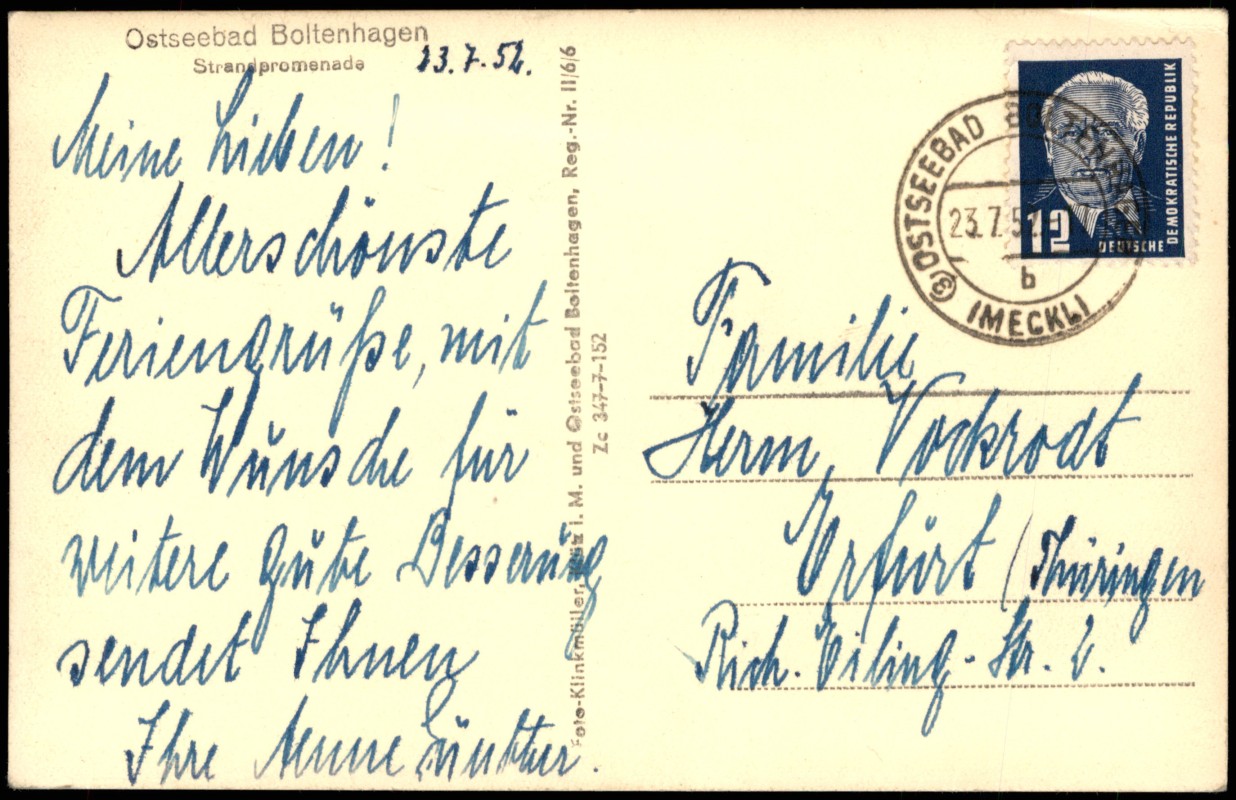 Ostseebad Boltenhagen
Strandpromenade
23.7.52.
Meine Lieben!
Allerschönste
Feriengrüße, mit
dem Wunsche für
weitere gute Besserung
sendet Ihnen
Ihre Aenne
Foto-Klinkmüller, i. M. und Ostseebad Boltenhagen, Reg.-Nr. II/6/6
Zc 347-7-152
DEUTSCHE DEMOKRATISCHE REPUBLIK
12
(3) OSTSEEBAD BOLTENHAGEN
23.7.52
b
(MECKL)
Familie
Herm. Vockrodt
Erfurt / Thüringen
Rich. Eiling-Str. 2.